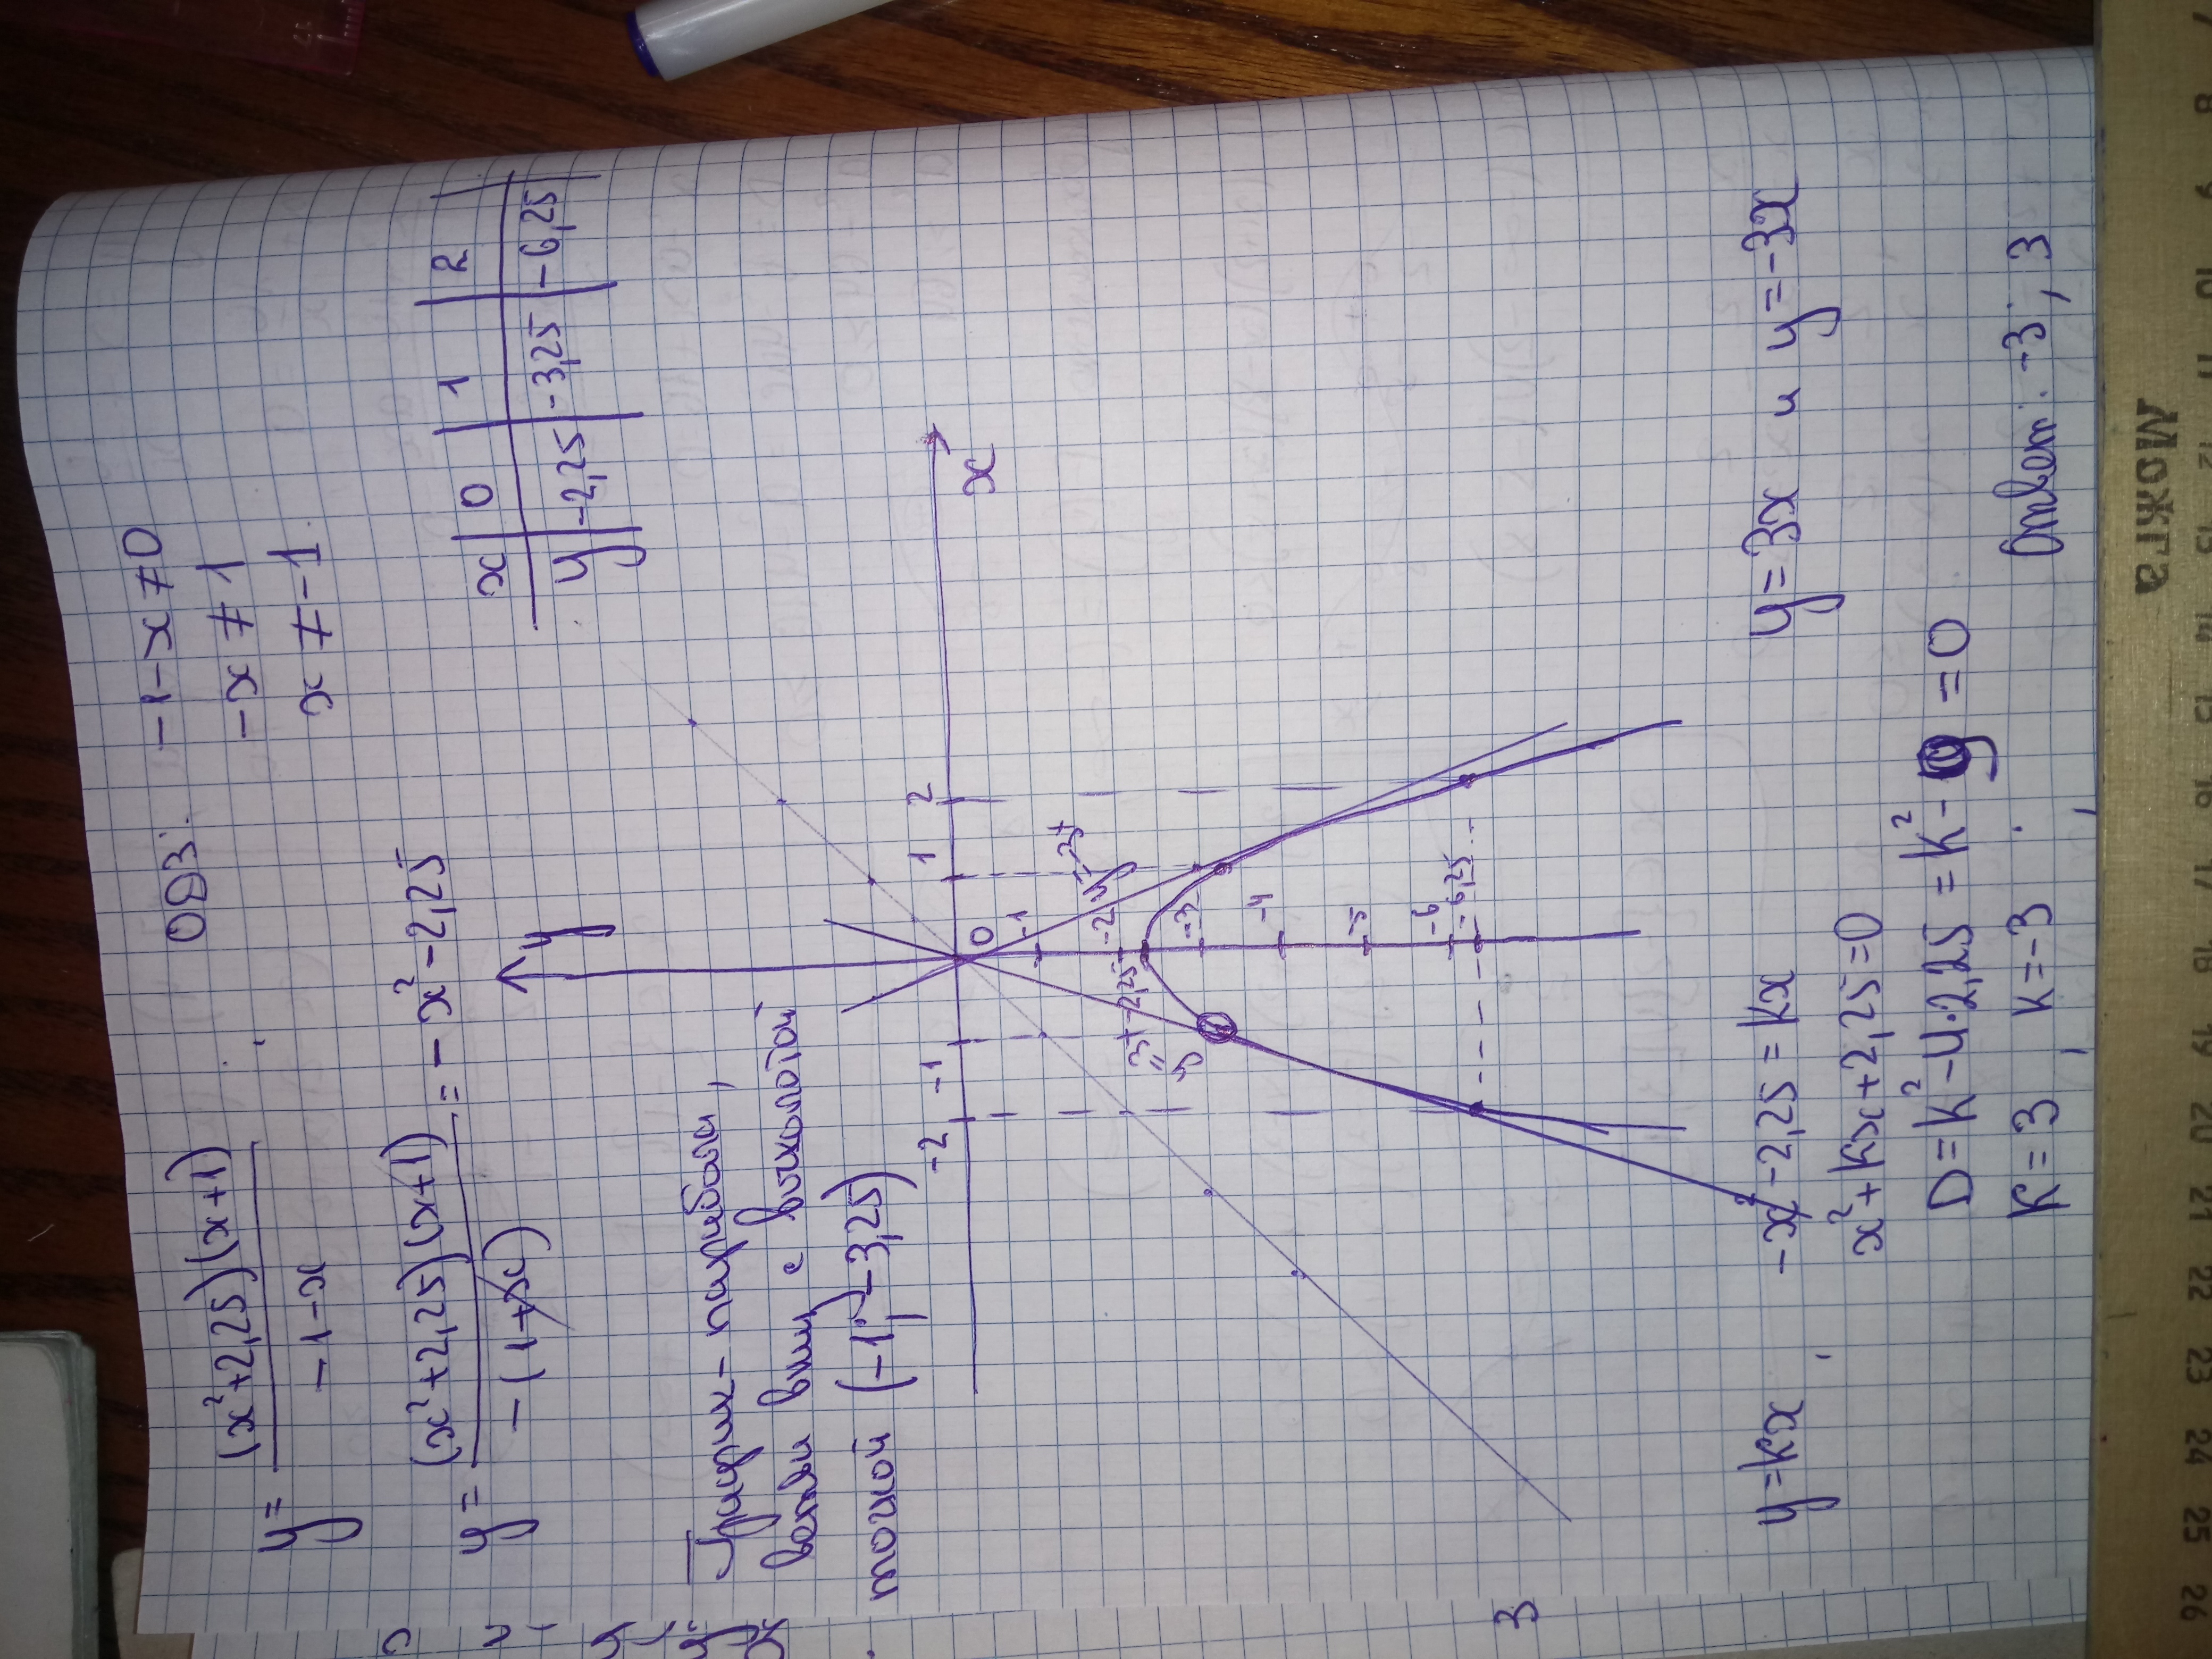 y = (x²+2,25)(x+1) / -1-x
ОДЗ: -1-x≠0
-x≠1
x≠-1
y = (x²+2,25)(x+1) / -(1+x) = -x²-2,25
x 0 1 2
y -2,25 -3,25 -6,25
График - парабола,
ветви вниз, с выколотой
точкой (-1; -3,25)
y
x
-2 -1 0 1 2
-1
-2
-2,25
-3
-4
-5
-6
-6,25
y=3x
y=-3x
y=kx, -x²-2,25=kx y=3x и y=-3x
x²+kx+2,25=0
D=k²-4·2,25=k²-9=0
k=3, k=-3. Ответ: -3; 3
3
Можга
8 9 10 11 12 13 14 15 16 17 18 19 20 21 22 23 24 25 26